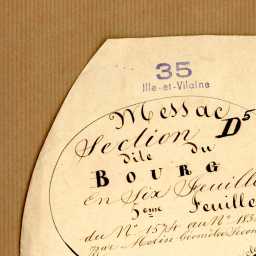 35
Ille-et-Vilaine
Messac
Section D5
dite du
BOURG
En Six Feuille
5eme Feuille
du No 1574 au No 183
par